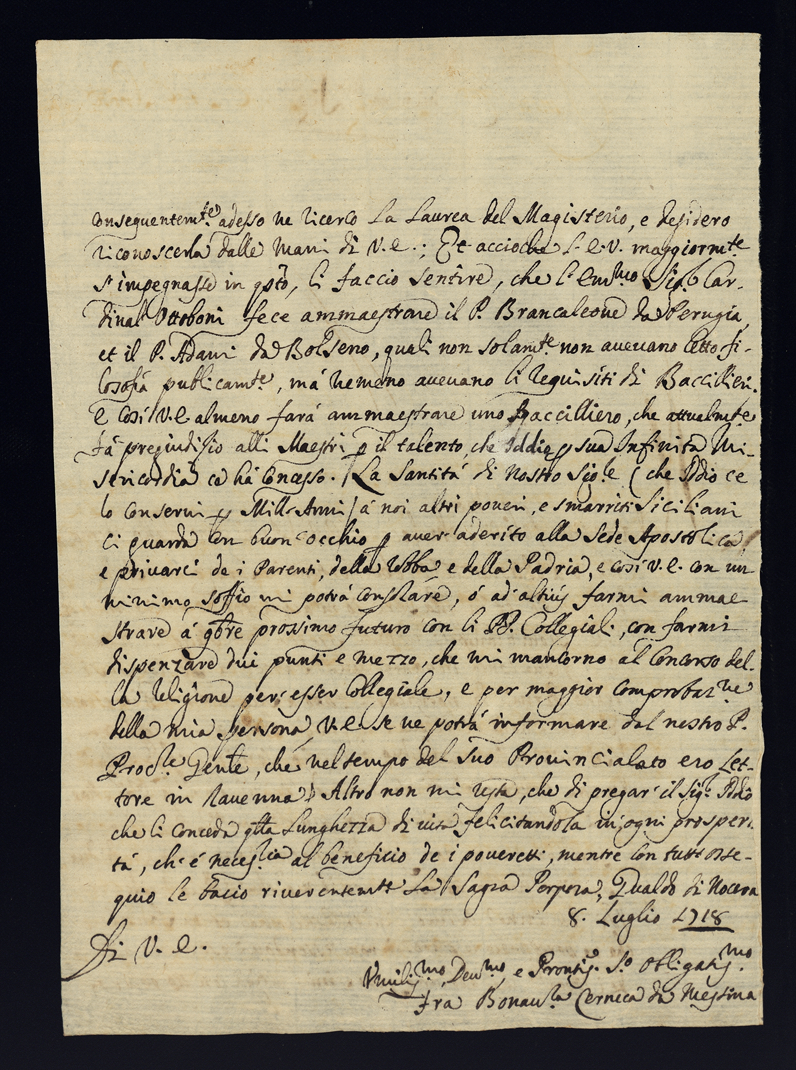 conseguentem.te adesso ne ricerco la laurea del Magisterio, e desidero
riconoscerla dalle mani di V.E.; Et accioche l'E.V. maggiorm.te
s'impegnasse in qsto, li faccio sentire, che l'Em.mo Sig.r Car-
dinal Ottoboni fece ammaestrare il P. Brancaleone da Perugia,
et il P. Adami da Bolseno, quali non solam.te non avevano letto fi-
losofia publicam.te, mà nemeno avevano li requisiti di Baccillieri.
E così V.E. almeno farà ammaestrare uno Baccilliero, che attualm.te
fà pregiudisio alli Maestri p il talento, che Iddio p sua Infinita Mi-
sericordia ce hà concesso. La Santità di Nostro Sig.re (che Iddio ce
lo conservi p Mill'Anni) à noi altri poveri, e smarriti Siciliani
ci guarda con buon'occhio p aver aderito alla Sede Apostolica,
e privarci de i Parenti, della robba e della Padria, e così V.E. con un
minimo soffio mi potrà consolare, ò ad'altius farmi ammae
strare à 9bre prossimo futuro con li PP. Collegiali, con farmi
dispenzare dui punti e mezzo, che mi mancorno al Concorso del-
la religione per esser Collegiale, e per maggior comprobaz.ne
della mia persona V.E. se ne potrà informare dal nostro P.
Proc.re Gen.le, che nel tempo del suo Provincialato ero let-
tore in Ravenna. Altro non mi resta, che di pregar' il Sig.r Iddio
che li conceda qlla lunghezza di vita felicitandola in ogni prosperi-
tà, ch'è necess.ria al beneficio de i poveretti, mentre con tutt'osse-
quio le bacio riverentem.te la Sagra Porpora, Gualdo di Nocera
8. Luglio 1718
Di V.E.
Umiliss.mo, Dev.mo, e Prontis. S.o Obligatis.mo
Fra Bonav.ra Cernica da Messina